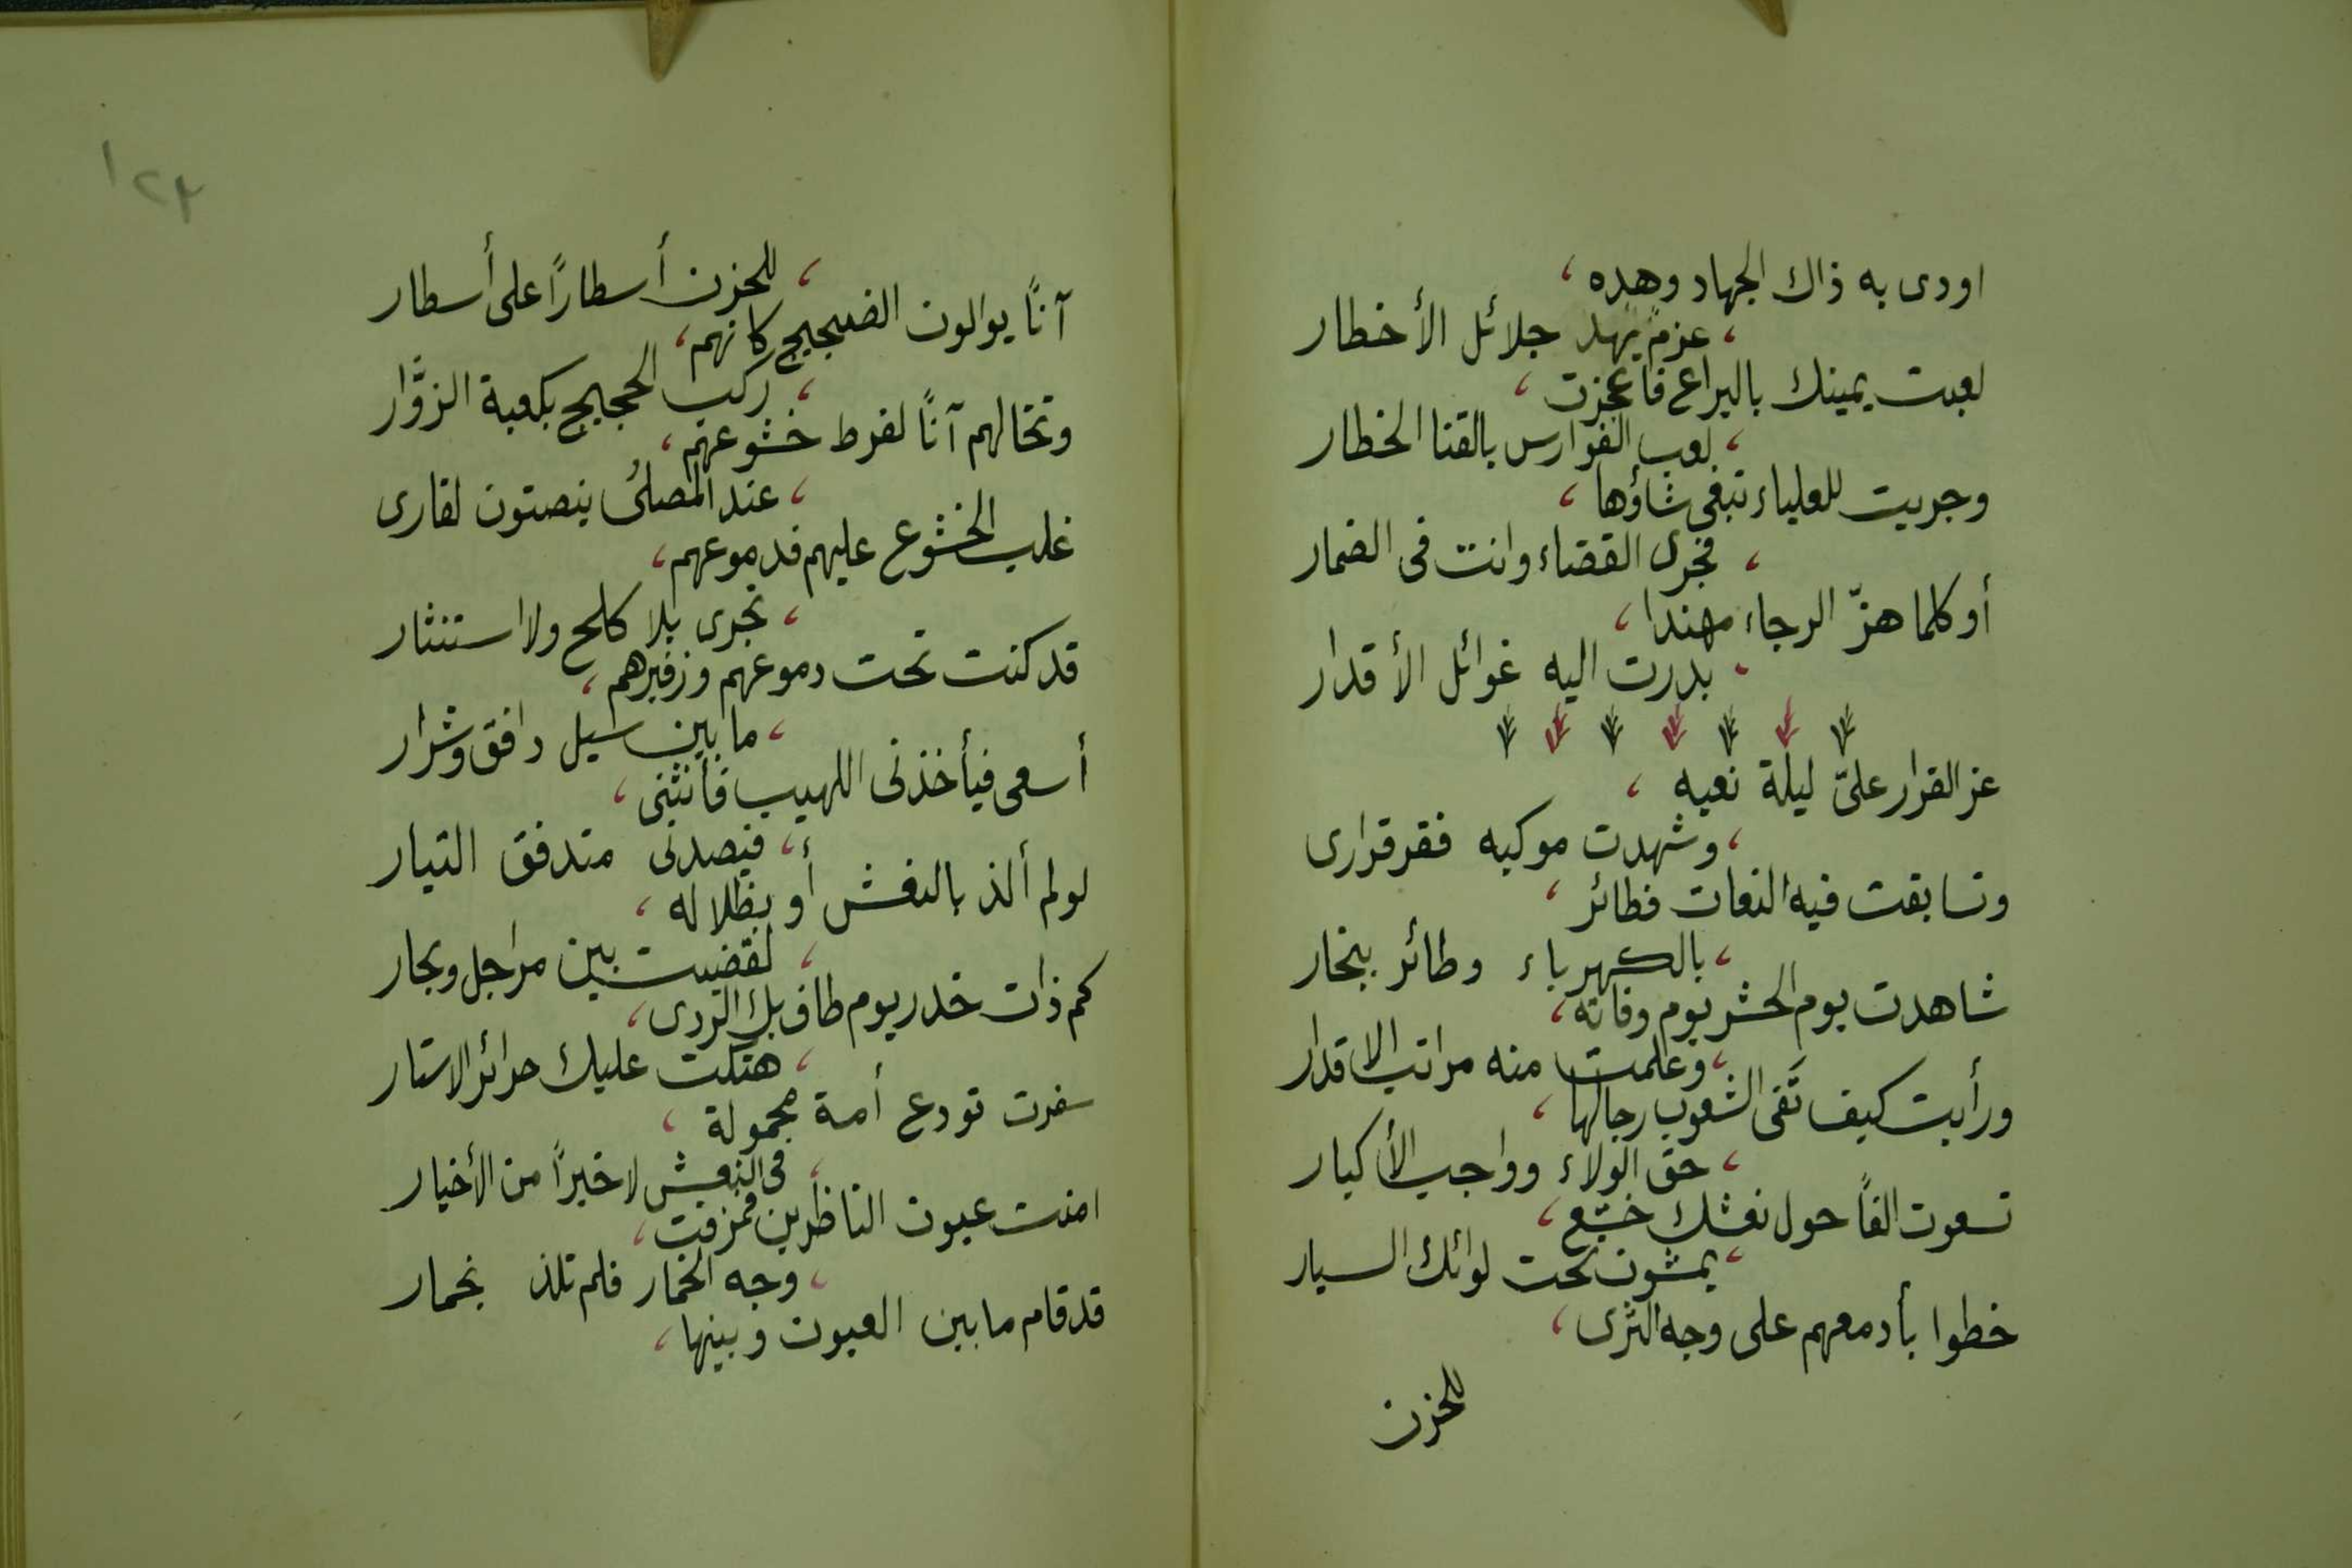 اودى به ذاك الجهاد وهده ،
، عزمٌ يهد جلائل الأخطار
لعبت يمينك باليراع فاعجزت ،
، لعب الفوارس بالقنا الخطار
وجريت للعلياء تبغى شأوها ،
، فجرى القضاء وانت فى الضمار
أو كلما هزّ الرجاء مهندا ،
، بدرت اليه غوائل الأقدار
عز القرار علىّ ليلة نعيه ،
، وشهدت موكبه فقر قرارى
وتسابقت فيه النعات فطائر ،
، بالكهرباء وطائر ببخار
شاهدت يوم الحشر يوم وفاته ،
، وعلمت منه مراتب الاقدار
ورأيت كيف تَفى الشعوب رجالها ،
، حق الولاء وواجب الأكبار
تسعون الفاً حول نعشك خشّع ،
، يمشون تحت لوائك السيار
خطوا بأدمعهم على وجه الثرى ،
للحزن
١٢٣
، للحزن أسطاراً على أسطار
آناً يوالون الضجيج كانهم ،
، ركب الحجيج بكعبة الزوَّار
وتخالهم آناً لفرط خشوعهم ،
، عند المصلىُ ينصتون لقارى
غلب الخشوع عليهم فدموعهم ،
، تجرى بلا كلح ولا استنثار
قد كنت تحت دموعهم وزفيرهم ،
، ما بين سيل دافق وشرار
أسعى فيأخذنى اللهيب فأنثنى ،
، فيصدنى متدفق التيار
لو لم ألذ بالنعش أو بظلاله ،
، لقضيت بين مراجل وبحار
كم ذات خدر يوم طاف بك الردى ،
، هتكت عليك حرائر الاستار
سفرت تودع أمة محمولة ،
، فى النعش لا خيراً من الأخيار
امنت عيون الناظرين فمزقت ،
، وجه الخمار فلم تلذ بخمار
قد قام ما بين العيون وبينها ،